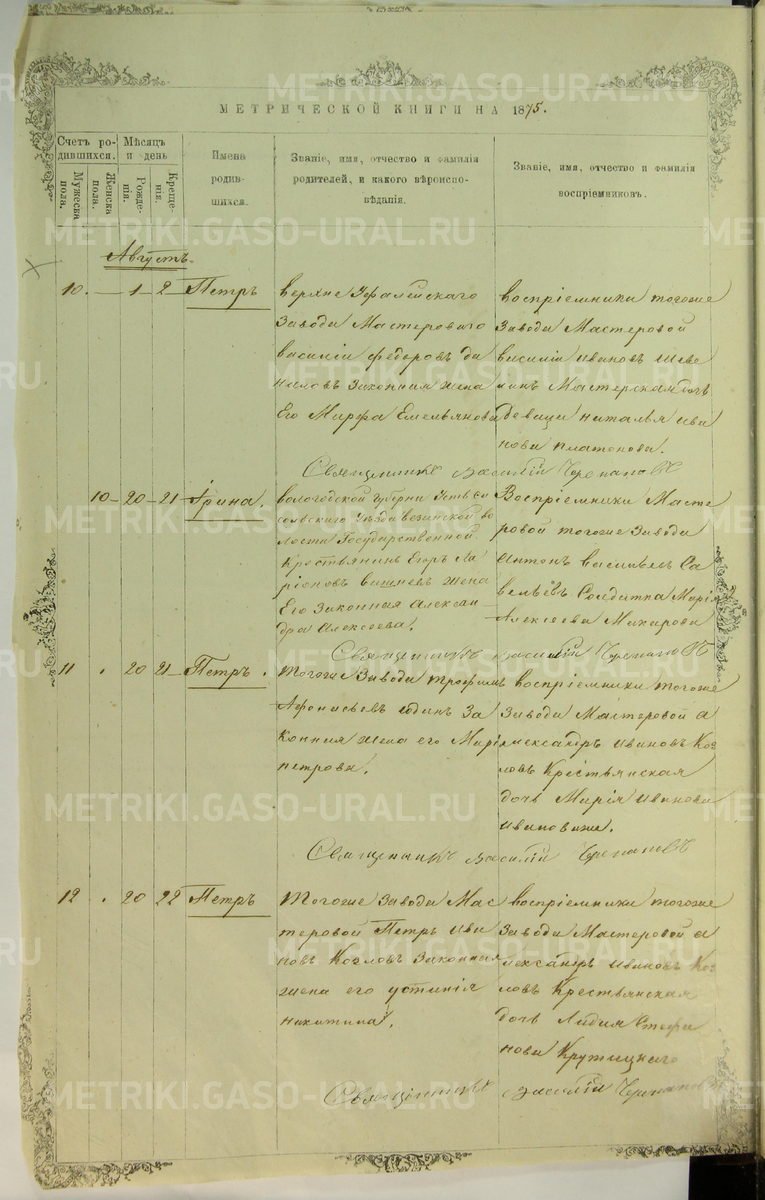 METRIKI.GASO-URAL.RU
МЕТРИЧЕСКОЙ КНИГИ НА 1875.
Счетъ ро-
дившихся.
Мужеска
пола.
Женска
пола.
Мѣсяцъ
и день
Рожде-
нія.
Креще-
нія.
Имена
родив-
шихся.
Званіе, имя, отчество и фамилія
родителей, и какого вѣроиспо-
вѣданія.
Званіе, имя, отчество и фамилія
воспріемниковъ.
Августъ.
10. — 1 — 2 — Петръ
верхне Уфалейскаго
завода Мастероваго
василій федоровъ да
законная жена
Его Марфа Емельянова
воспріемники тогоже
завода Мастеровой
василій ивановъ
Мастерская дочь
Девица наталья ива
нова платонова.
Священникъ Василий Черепановъ
10 — 20 — 21 — Ірина.
вологодской губерни Усть Сы
сольскаго уѣзда во
лости Государственной
Крестьянинъ Егоръ Ла
ріоновъ жена
Его законная Алексан
дра Алексѣева.
Воспріемники Масте
ровой тогоже завода
Антонъ васильевъ Са
вельевъ Солдатка Марія
Алексѣева Макарова
Священникъ василий Черепановъ
11 . 20 21 — Петръ.
тогоже завода трофимъ
Афонасьевъ За
конная жена его Марія
петрова.
воспріемники тогоже
завода Мастеровой а
лександръ ивановъ Коз
ловъ Крестьянская
дочь Марія Иванова
Священникъ Василий Черепановъ
12 . 20 22 Петръ
тогоже завода Мас
теровой Петръ ива
новъ Козловъ законная
жена его устинія
никитина.
воспріемники тогоже
завода Мастеровой а
лександръ ивановъ Коз
ловъ Крестьянская
дочь Лидия Стефа
нова Крутицкаго
Священникъ Василий Черепановъ